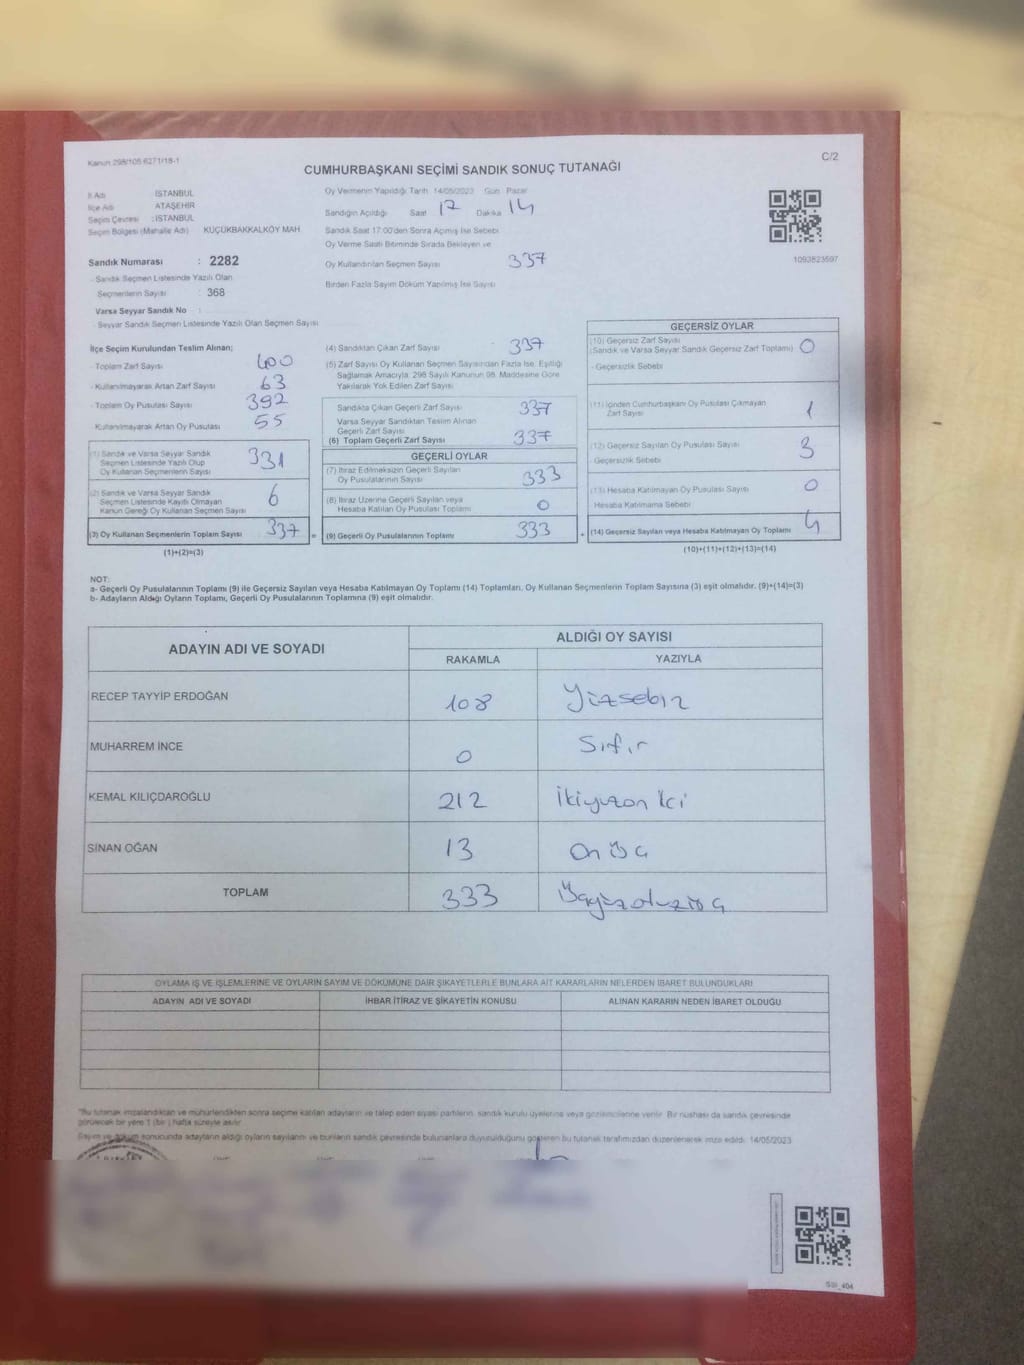 Kanun 298/105 6271/18-1
C/2
CUMHURBAŞKANI SEÇİMİ SANDIK SONUÇ TUTANAĞI
İl Adı İSTANBUL
İlçe Adı ATAŞEHİR
Seçim Çevresi : İSTANBUL
Seçim Bölgesi (Mahalle Adı) KÜÇÜKBAKKALKÖY MAH
Sandık Numarası : 2282
- Sandık Seçmen Listesinde Yazılı Olan
Seçmenlerin Sayısı : 368
Varsa Seyyar Sandık No :
- Seyyar Sandık Seçmen Listesinde Yazılı Olan Seçmen Sayısı
Oy Vermenin Yapıldığı Tarih 14/05/2023 Gün Pazar
Sandığın Açıldığı Saat 17 Dakika 14
Sandık Saat 17:00'den Sonra Açılmış İse Sebebi
Oy Verme Saati Bitiminde Sırada Bekleyen ve
Oy Kullandırılan Seçmen Sayısı 337
Birden Fazla Sayım Döküm Yapılmış İse Sayısı
1093823597
İlçe Seçim Kurulundan Teslim Alınan;
- Toplam Zarf Sayısı 400
- Kullanılmayarak Artan Zarf Sayısı 63
- Toplam Oy Pusulası Sayısı 392
- Kullanılmayarak Artan Oy Pusulası 55
(1) Sandık ve Varsa Seyyar Sandık
Seçmen Listesinde Yazılı Olup
Oy Kullanan Seçmenlerin Sayısı 331
(2) Sandık ve Varsa Seyyar Sandık
Seçmen Listesinde Kayıtlı Olmayan
Kanun Gereği Oy Kullanan Seçmen Sayısı 6
(3) Oy Kullanan Seçmenlerin Toplam Sayısı 337 =
(1)+(2)=(3)
(4) Sandıktan Çıkan Zarf Sayısı 337
(5) Zarf Sayısı Oy Kullanan Seçmen Sayısından Fazla İse, Eşitliği
Sağlamak Amacıyla, 298 Sayılı Kanunun 98. Maddesine Göre
Yakılarak Yok Edilen Zarf Sayısı
Sandıkta Çıkan Geçerli Zarf Sayısı 337
Varsa Seyyar Sandıktan Teslim Alınan
Geçerli Zarf Sayısı
(6) Toplam Geçerli Zarf Sayısı 337
GEÇERLİ OYLAR
(7) İtiraz Edilmeksizin Geçerli Sayılan
Oy Pusulalarının Sayısı 333
(8) İtiraz Üzerine Geçerli Sayılan veya
Hesaba Katılan Oy Pusulası Toplamı 0
(9) Geçerli Oy Pusulalarının Toplamı 333 +
GEÇERSİZ OYLAR
(10) Geçersiz Zarf Sayısı
(Sandık ve Varsa Seyyar Sandık Geçersiz Zarf Toplamı) 0
- Geçersizlik Sebebi
(11) İçinden Cumhurbaşkanı Oy Pusulası Çıkmayan
Zarf Sayısı 1
(12) Geçersiz Sayılan Oy Pusulası Sayısı 3
- Geçersizlik Sebebi
(13) Hesaba Katılmayan Oy Pusulası Sayısı 0
Hesaba Katılmama Sebebi
(14) Geçersiz Sayılan veya Hesaba Katılmayan Oy Toplamı 4
(10)+(11)+(12)+(13)=(14)
NOT:
a- Geçerli Oy Pusulalarının Toplamı (9) ile Geçersiz Sayılan veya Hesaba Katılmayan Oy Toplamı (14) Toplamları, Oy Kullanan Seçmenlerin Toplam Sayısına (3) eşit olmalıdır. (9)+(14)=(3)
b- Adayların Aldığı Oyların Toplamı, Geçerli Oy Pusulalarının Toplamına (9) eşit olmalıdır.
ADAYIN ADI VE SOYADI
ALDIĞI OY SAYISI
RAKAMLA YAZIYLA
RECEP TAYYİP ERDOĞAN 108 Yüzsekiz
MUHARREM İNCE 0 Sıfır
KEMAL KILIÇDAROĞLU 212 İkiyüzon İki
SİNAN OĞAN 13 On üç
TOPLAM 333 Üçyüzotuzüç
OYLAMA İŞ VE İŞLEMLERİNE VE OYLARIN SAYIM VE DÖKÜMÜNE DAİR ŞİKAYETLERLE BUNLARA AİT KARARLARIN NELERDEN İBARET BULUNDUKLARI
ADAYIN ADI VE SOYADI İHBAR İTİRAZ VE ŞİKAYETİN KONUSU ALINAN KARARIN NEDEN İBARET OLDUĞU
*Bu tutanak imzalandıktan ve mühürlendikten sonra seçime katılan adayların ve talep eden siyasi partilerin, sandık kurulu üyelerine veya gözlemcilerine verilir. Bir nüshası da sandık çevresinde
görülecek bir yere 1 (bir) hafta süreyle asılır
Sayım ve döküm sonucunda adayların aldığı oyların sayılarını ve bunların sandık çevresinde bulunanlara duyurulduğunu gösteren bu tutanak tarafımızdan düzenlenerek imza edildi. 14/05/2023
SSI_404